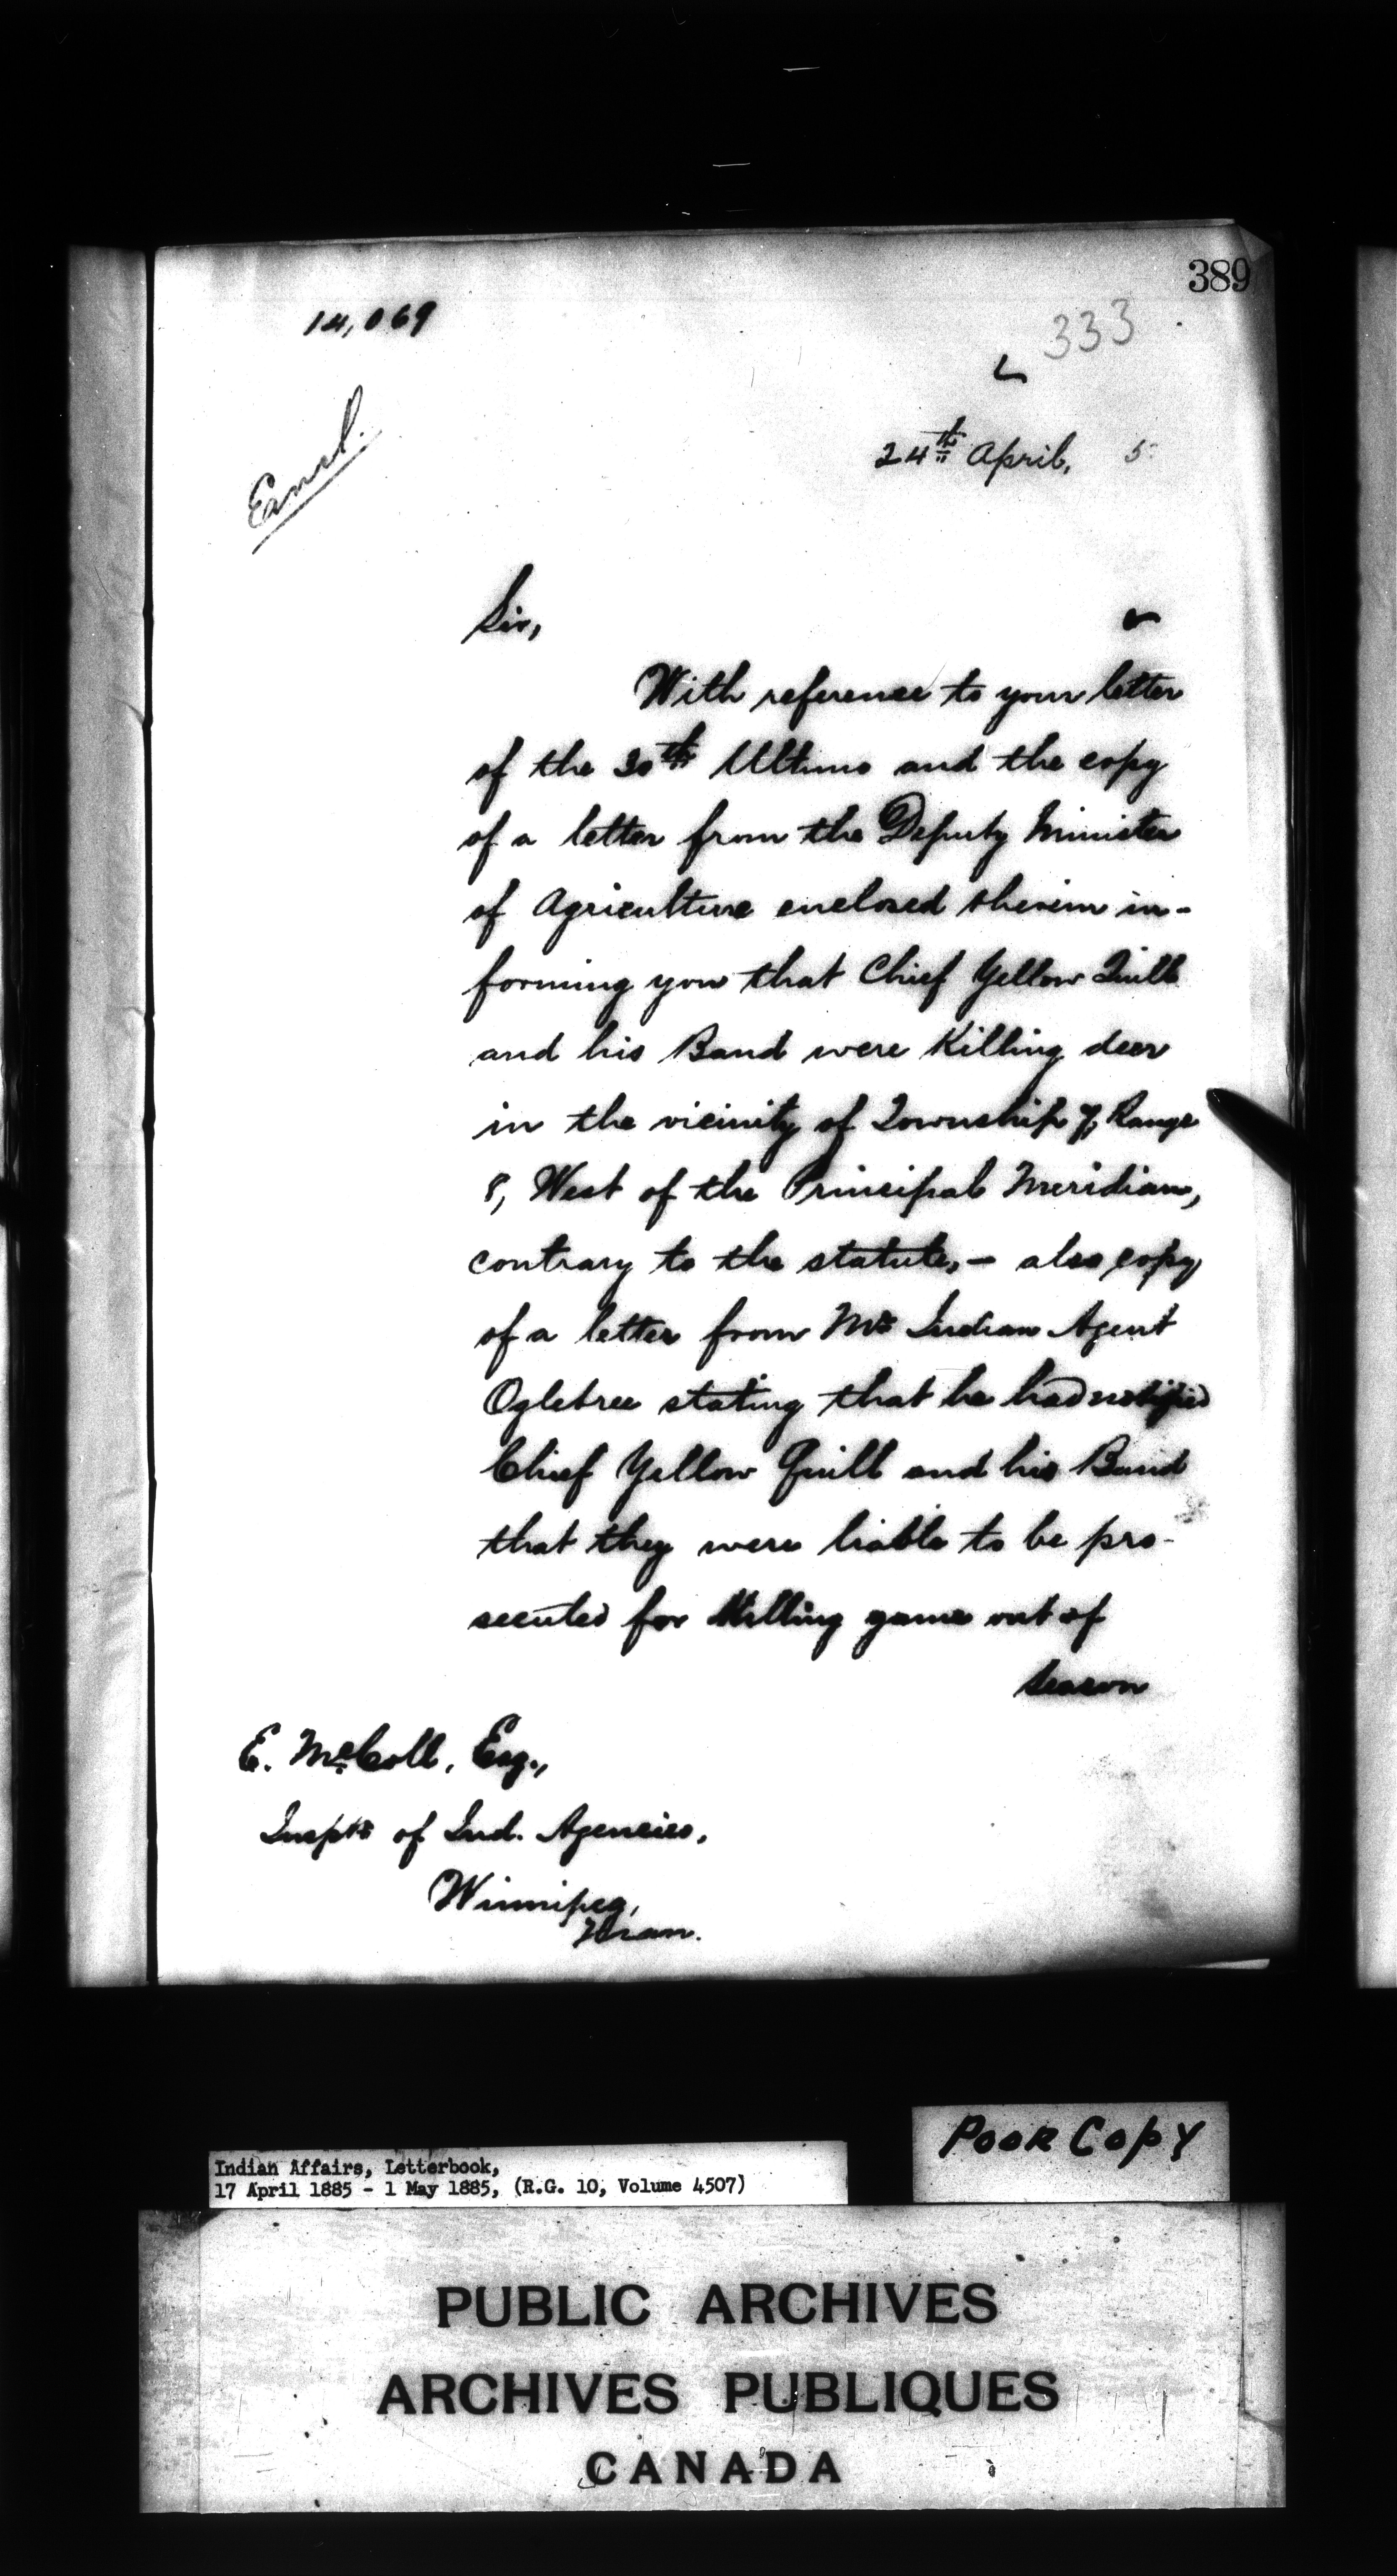 389
14,069
333
24th April, 5
Sir,
With reference to your letter
of the 30th Ultimo and the copy
of a letter from the Deputy Minister
of Agriculture enclosed therein in-
forming you that Chief Yellow Quill
and his Band were Killing deer
in the vicinity of Township 7, Range
8, West of the Principal Meridian,
contrary to the statute, - also copy
of a letter from Mr Indian Agent
Ogletree stating that he had notified
Chief Yellow Quill and his Band
that they were liable to be pro-
secuted for Killing game out of
season
E. McColl, Esq.,
Insptr of Ind. Agencies,
Winnipeg,
Man.
POOR COPY
Indian Affairs, Letterbook,
17 April 1885 - 1 May 1885, (R.G. 10, Volume 4507)
PUBLIC ARCHIVES
ARCHIVES PUBLIQUES
CANADA